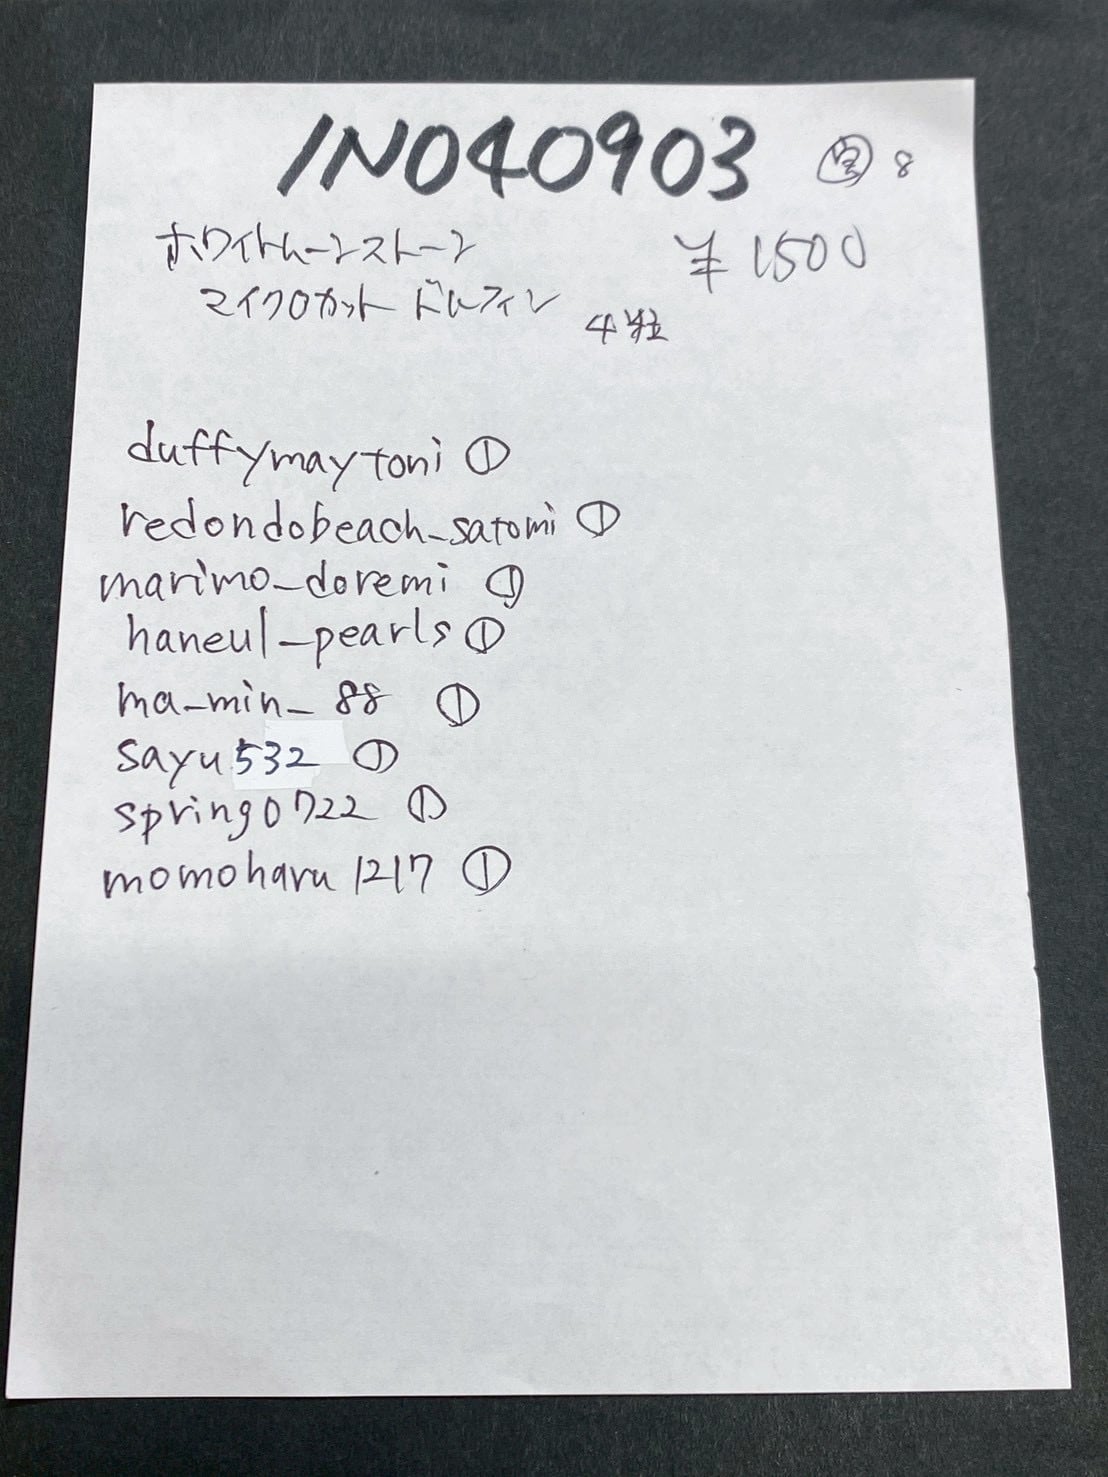 IN040903 8
ホワイトムーンストーン ¥1500
マイクロカット ドルフィン 4粒
duffymaytoni ①
redondobeach_satomi ①
marimo_doremi ①
haneul_pearls ①
ma_min_88 ①
sayu532 ①
spring0722 ①
momoharu1217 ①